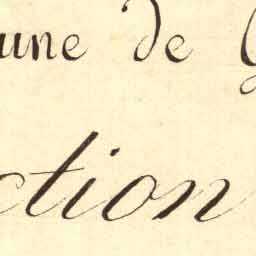 une de
ction